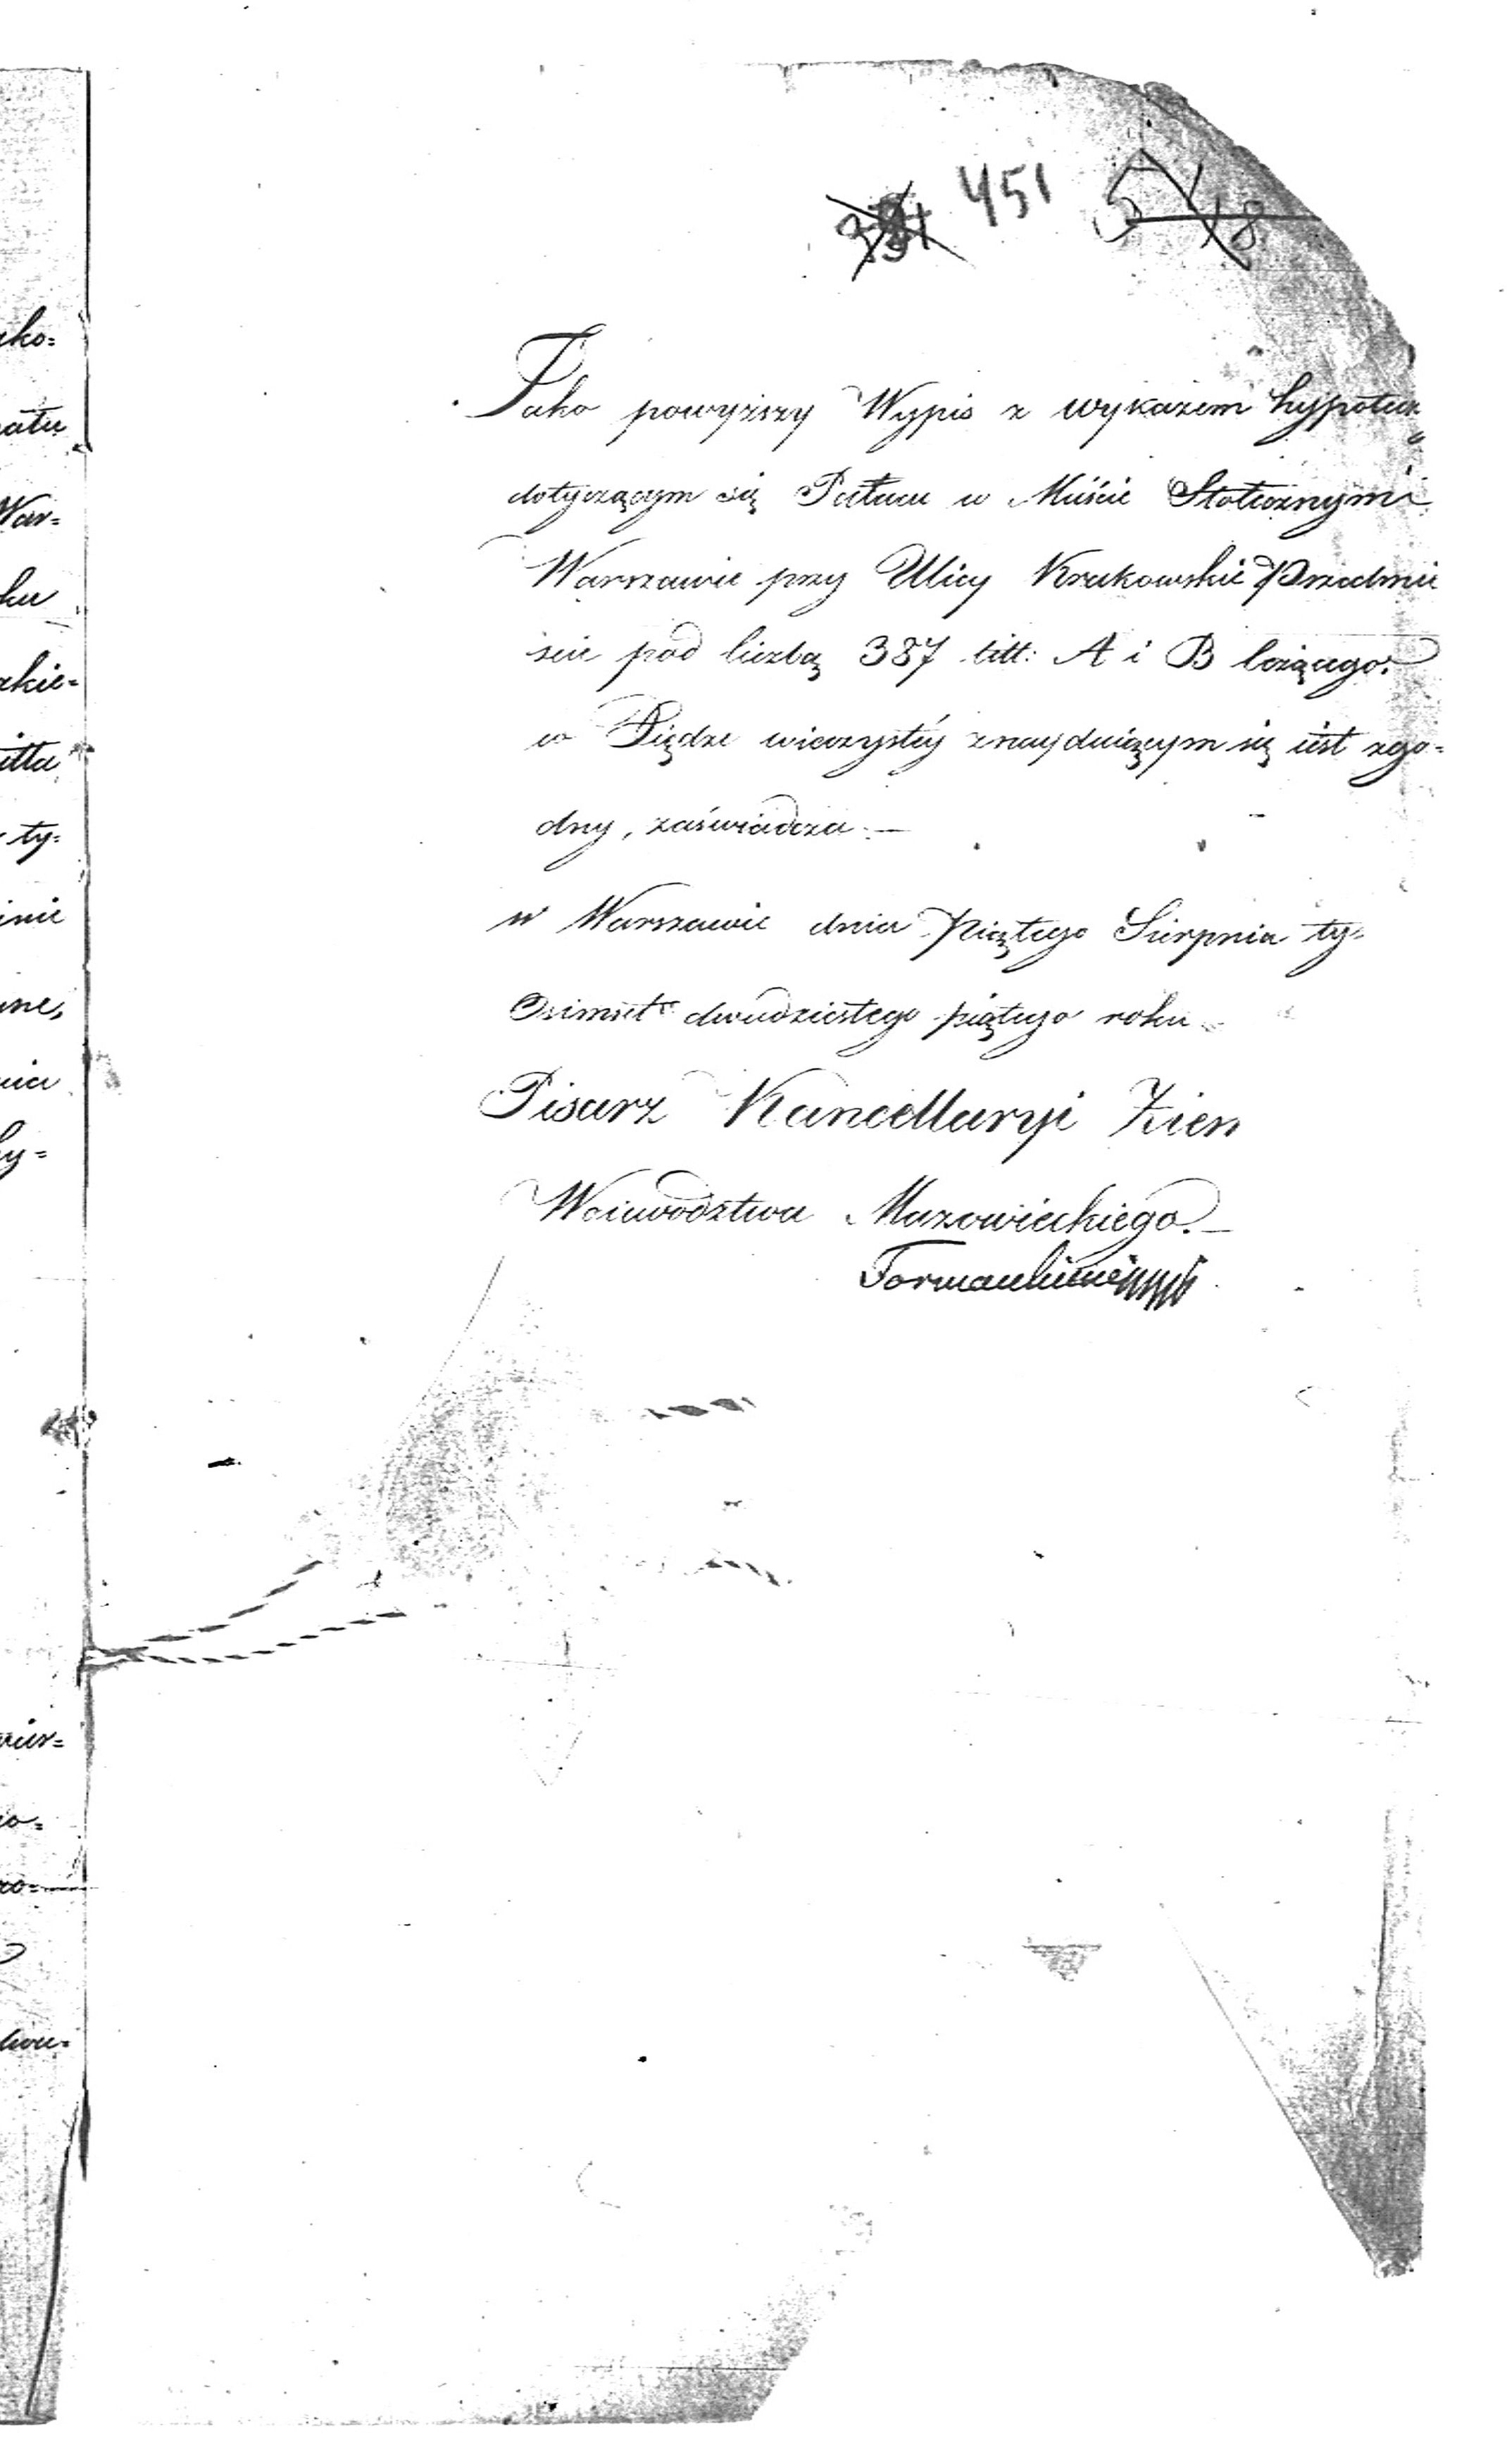 451
Jako powyższy Wypis z wykazem hypotecz
dotyczącym się Pałacu w Mieście Stołecznym
Warszawie przy Ulicy Krakowskie Przedmie
ście pod liczbą 387 litt: A i B leżącego
w Xiędze wieczystéj znayduiącym się iest zgo-
dny, zaświadcza.—
w Warszawie dnia Piątego Sierpnia ty-
Osimset dwudziestego piątego roku
Pisarz Kancellaryi Ziem
Woiewództwa Mazowieckiego.—
ako=
atu
War=
ku
zkie=
itta
ty-
inie
ne,
nia
hy=